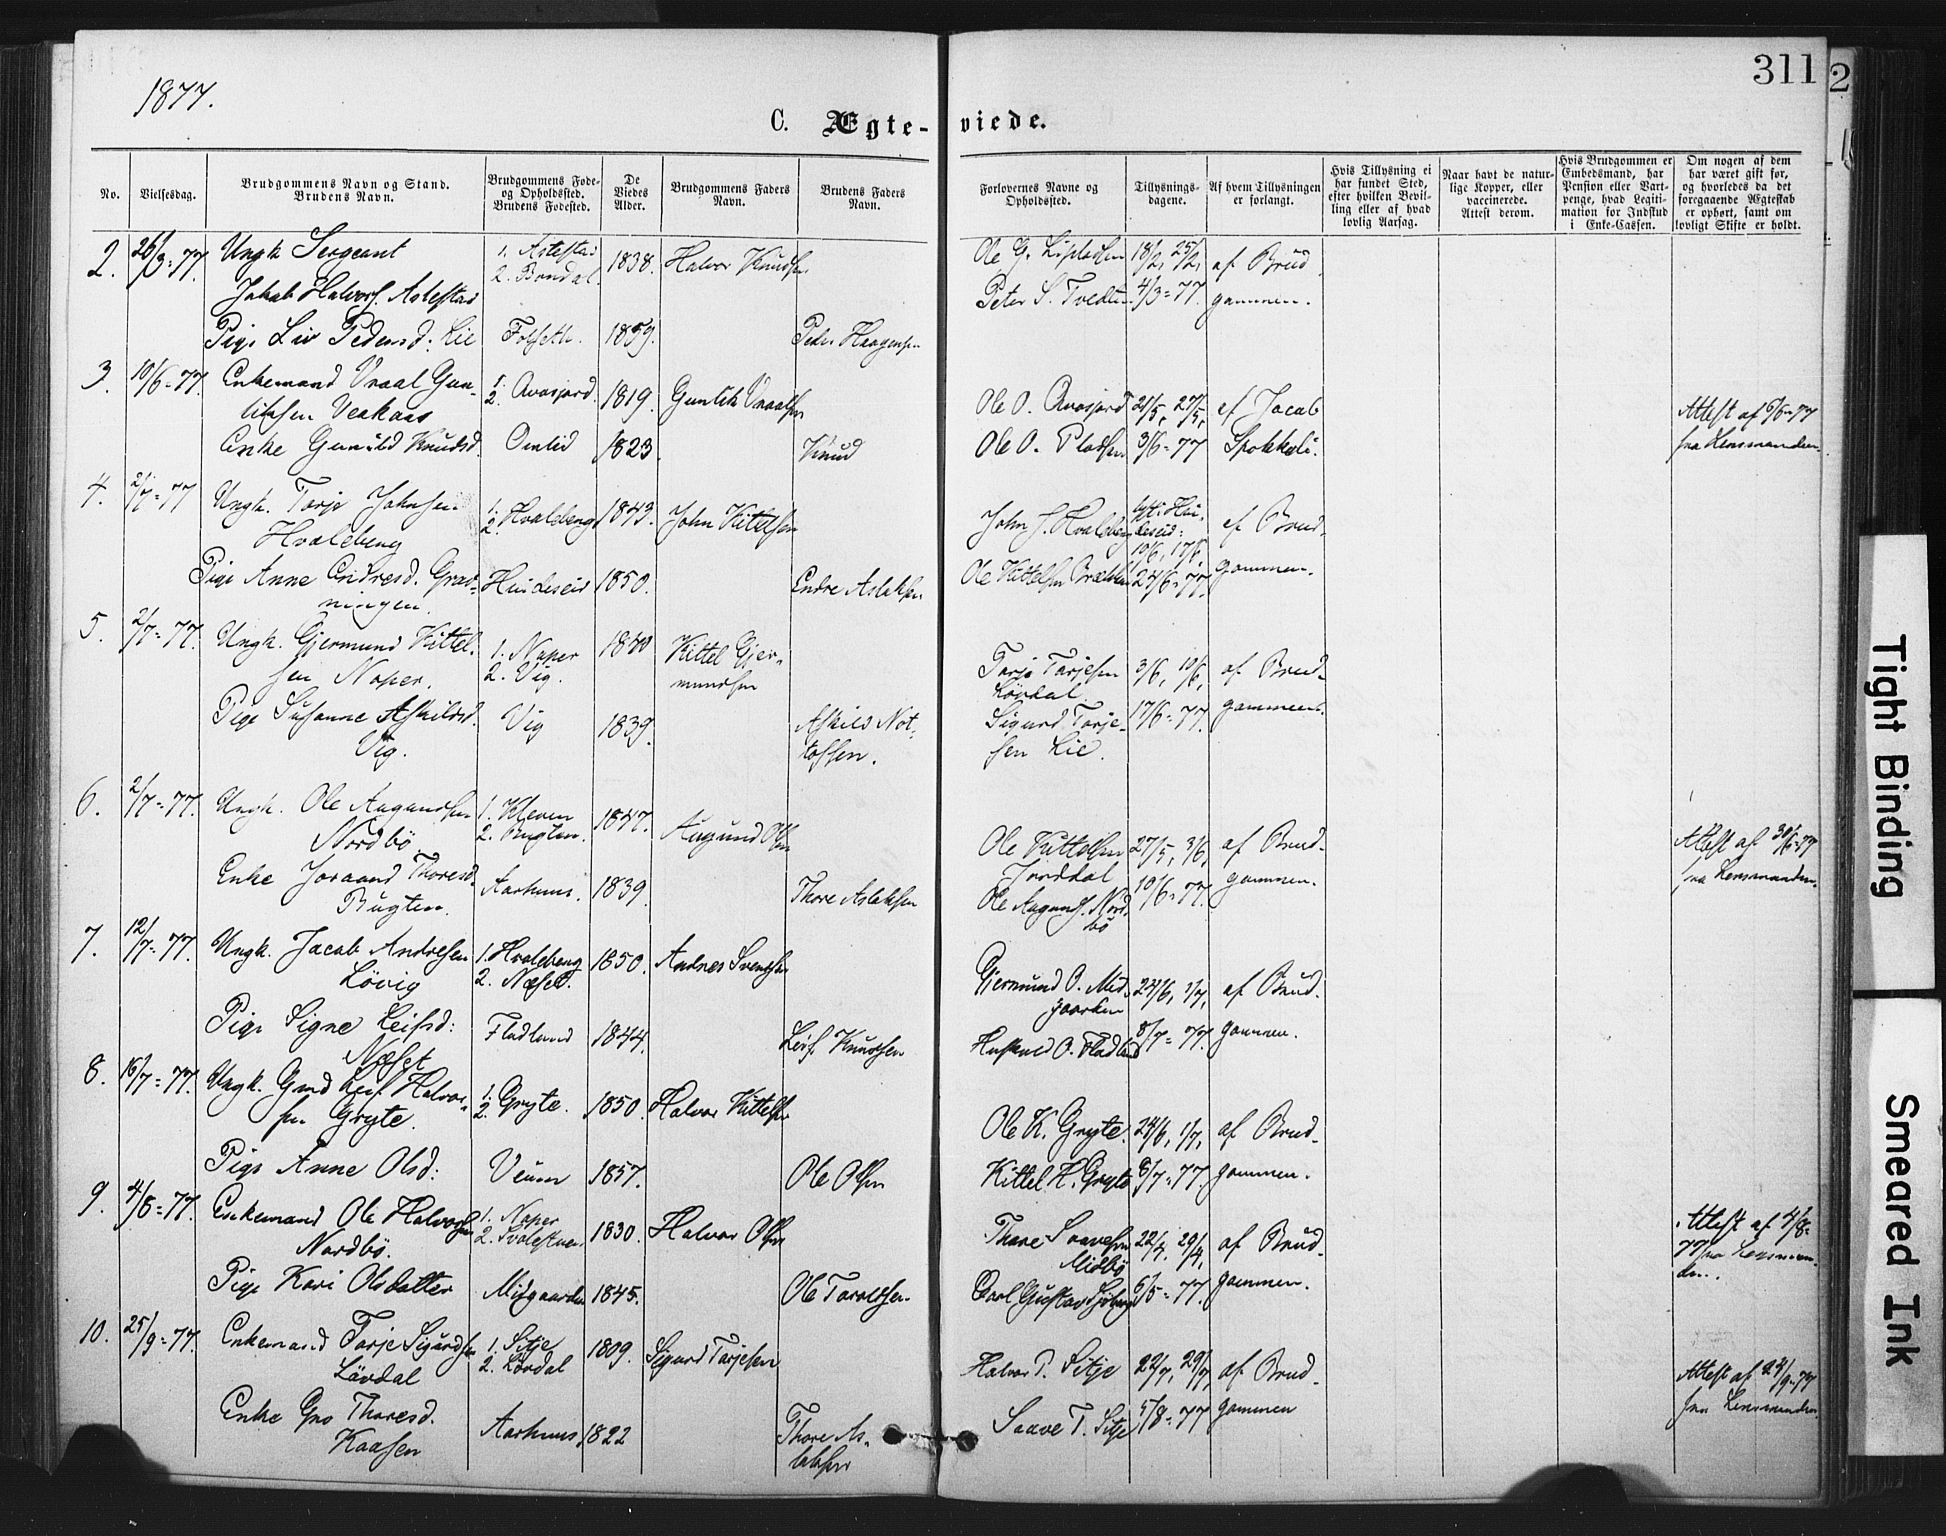 1877.
311
2
C. Ægte-viede.
No.
Vielsesdag.
Brudgommens Navn og Stand.
Brudens Navn.
Brudgommens Føde-
og Opholdssted.
Brudens Fødested.
De
Viedes
Alder.
Brudgommens Faders
Navn.
Brudens Faders
Navn.
Forlovernes Navne og
Opholdssted.
Tillysnings-
dagene.
Af hvem Tillysningen
er forlangt.
Hvis Tillysning ei
har fundet Sted,
efter hvilken Bevil-
ling eller af hvad
lovlig Aarsag.
Naar havt de natur-
lige Kopper, eller
vaccinerede.
Attest derom.
Hvis Brudgommen er
Embedsmand, har
Pension eller Vart-
penge, hvad Legiti-
mation for Indskud
i Enke-Cassen.
Om nogen af dem
har været gift før,
og hvorledes da det
foregaaende Ægteskab
er ophørt, samt om
lovligt Skifte er holdt.
2. 26/3=77. Ungk Sergeant 1. Astestad 1838. Halvor Knudsen Ole G. 18/2, 25/2, af Brud
Jakob Halvors. Astestad 2. Bondal. Peter S. Tvedten 4/3=77. gommen.
Pige Liv Pedersd. Lie 1859. Peder Haagensen
3. 10/6=77. Enkemand Vraal Gun- 1. 2. Qvasjord 1819. Gunlek Vraalsen Ole O. Qvasjord 21/5, 27/5, af Jacob Attest af 6/6=77
leksen Veakaas
Enke Gunild Knudsd. Omlid 1823. Knud Ole O. Pladsen 3/6=77 Spokkeli. fra Lensmanden
4. 2/7=77 Ungk. Tarje Johnsen 1. 2. Hvaleberg 1843. John Kittelsen John J. Hvaleberg af Brud-
Hvaleberg 10/6, 17/6,
Pige Anne Endresd. Grav- Hvideseid 1850. Endre Aslaksen Ole Kittelsen 24/6=77. gommen.
ningen.
5. 2/7=77. Ungk. Gjermund Kittel- 1. Naper Kittel Gjer- Tarje Tarjesen 3/6, 10/6, af Brud-
sen Naper. 2. Vig. mundsen Lövdal
Pige Susanne Askildsd. Vig 1839. Askild Not- Sigurd Tarje- 17/6=77. gommen.
Vig. tolfsen. sen Lie.
6. 2/7=77. Ungk. Ole Aagundsen 1. Kleven 1847. Aagund Olsen Ole Kittelsen 27/5, 3/6, af Brud- Attest af 30/6=77
Nordbö 2. Bugten. Jorddal
Enke Joraand Thoresd. Aarhuus. 1839. Thore Aslaksen Ole Aagunds. Nord- 10/6=77. gommen. fra Lensmanden.
Bugten. bö
7. 12/7=77. Ungk. Jacob Andresen 1. Hvaleberg 1850. Andres Svendsen Gjermund O. Mid- 24/6, 1/7, af Brud-
Lövig 2. Næset. gaarden
Pige Signe Leifsd: Fladland 1844. Leif Knudsen O. Fladland 8/7=77. gommen.
Næset
8. 16/7=77. Ungk. Gmd Leif Halvor- 1. 2. Gryte. 1850. Halvor Kittelsen Ole K. Gryte. 24/6, 1/7, af Brud-
sen Gryte.
Pige Anne Olsd: Veum 1857. Ole Olsen Kittel H. Gryte 8/7=77. gommen.
9. 4/8=77. Enkemand Ole Halvorsen 1. Naper 1830. Halvor Olsen Thore Saavesen 22/4, 29/4, af Brud- Attest af 4/8=
Nordbö. 2. Midbö 77 fra Lensman-
Pige Kari Olsdatter Midgaarden 1845. Ole Taraldsen. Carl Gustav Sjöberg 6/5=77. gommen. den.
10. 25/9=77. Enkemand Tarje Sigurdsen 1. Sitje 1809. Sigurd Tarjesen Halvor T. Sitje 22/7, 29/7, af Brud- Attest af 24/9=77
Lövdal 2. Lövdal
Enke Gro Thoresd. Aarhuus 1822 Thore As- Saave T. Sitje 5/8=77 gommen fra Lensmanden
Kaasen laksen
Tight Binding
Smeared Ink